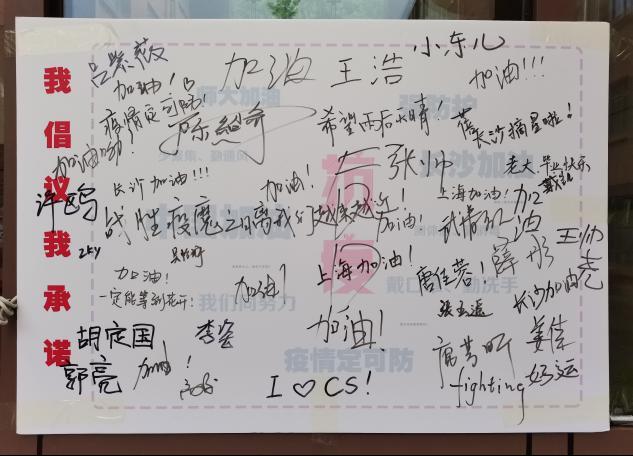 我倡议我承诺
吕紫薇
小东儿
加油 王浩
加油!
加油!!!
师大加油
强防护
疫情定可防!
希望雨后小晴!
蓓长沙摘星啦!
少聚集、勤通风
长沙加油
加油哟!
张帅
老大毕业快乐
长沙加油!!!
加油!
上海加油!
加油
许鸥
战胜疫魔之日离我们越来越近!
加油!
武情
抗疫
王帅
加油!
上海加油!
唐佳蓉!
薛彤
一定能等到花开!
加油!
我们同努力
戴口
勤洗手
张孟遥
长沙加油
加油!
胡定国
李姿
姜佳
疫情定可防
郭亮
加油
I ♡ CS!
fighting
好运